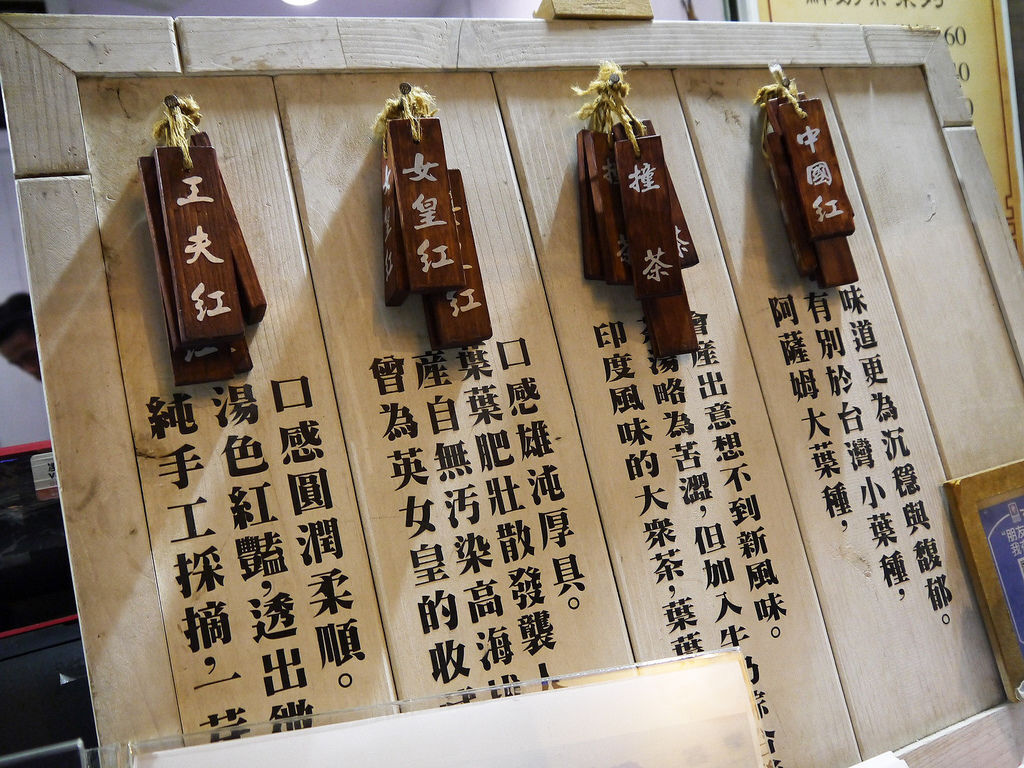 工夫紅
純手工採摘，一芽
湯色紅豔，透出
口感圓潤柔順。
女皇紅
紅
曾為英女皇的收
產自無污染高海拔
葉葉肥壯散發襲人
口感雄沌厚具。
撞茶
茶
印度風味的大眾茶，葉葉
茶湯略為苦澀，但加入牛奶綜合
會產出意想不到新風味。
中國紅
阿薩姆大葉種，
有別於台灣小葉種，
味道更為沉穩與馥郁。
60